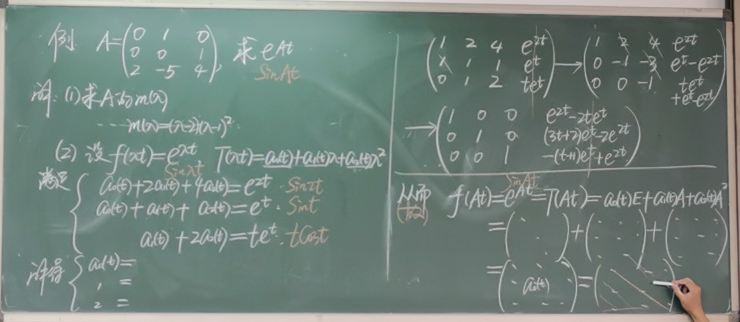 例 A=(0 1 0
0 0 1
2 -5 4), 求 e^{At}
sinAt
解: (1) 求A的m(λ)
m(λ)=(λ-2)(λ-1)^2
(2) 设 f(λt)=e^{λt} T(λt)=a_0(t)+a_1(t)λ+a_2(t)λ^2
sinλt
满足
a_0(t)+2a_1(t)+4a_2(t)=e^{2t} sin2t
a_0(t)+a_1(t)+a_2(t)=e^t sint
a_1(t)+2a_2(t)=te^t tcost
解得 a_0(t)=
1 =
2 =
(1 2 4 e^{2t}
1 1 1 e^t
0 1 2 te^t) → (1 2 4 e^{2t}
0 -1 -3 e^t-e^{2t}
0 0 -1 te^t+e^t-e^{2t})
→ (1 0 0 e^{2t}-2te^t
0 1 0 (3t+2)e^t-2e^{2t}
0 0 1 -(t+1)e^t+e^{2t})
sinAt
从而 f(At)=e^{At}=T(At)=a_0(t)E+a_1(t)A+a_2(t)A^2
=( )+( )+( )
=( a_0(t) )=( )